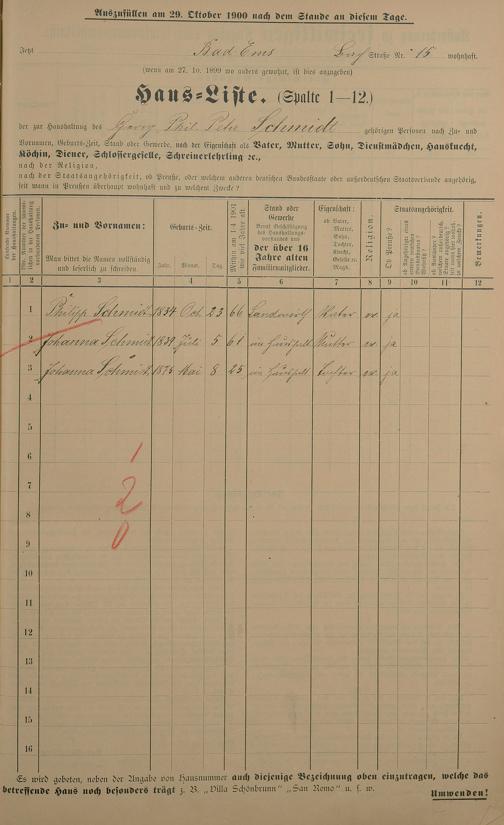 Auszufüllen am 29. Oktober 1900 nach dem Stande an diesem Tage.
Jetzt Bad Ems Straße Nr. 15 wohnhaft.
(wenn am 27. 10. 1899 wo anders gewohnt, ist dies anzugeben)
Haus-Liste. (Spalte 1—12.)
der zur Haushaltung des Georg Phil. Peter Schmidt gehörigen Personen nach Zu- und
Vornamen, Geburts-Zeit, Stand oder Gewerbe, nach der Eigenschaft als Vater, Mutter, Sohn, Dienstmädchen, Hausknecht,
Köchin, Diener, Schlossergeselle, Schreinerlehrling ꝛc.,
nach der Religion,
nach der Staatsangehörigkeit, ob Preuße, oder welchem anderen deutschen Bundesstaate oder außerdeutschen Staatsverbande angehörig,
seit wann in Preußen überhaupt wohnhaft und zu welchem Zwecke?
Zu- und Vornamen:
Man bittet die Namen vollständig
und leserlich zu schreiben.
Geburts-Zeit.
Jahr. Monat. Tag.
Mithin am 1.4 1901
wie viel Jahre alt
Stand oder
Gewerbe
Beruf Beschäftigung
des Haushaltungs-
vorstandes und
der über 16
Jahre alten
Familienmitglieder.
Eigenschaft:
ob Vater,
Mutter,
Sohn,
Tochter,
Knecht,
Geselle o.
Magd.
Religion.
Staatsangehörigkeit.
Ob Preuße?
Bemerkungen.
1 2 3 4 5 6 7 8 9 10 11 12
1 Philipp Schmidt 1834 Oct 23 66 Landwirth Vater ev ja
2 Johanna Schmidt 1839 Juli 5 61 im Haushalt Mutter ev ja
3 Johanna Schmidt 1875 Mai 8 25 im Haushalt Tochter ev ja
4
5
6 1
7 2
8
9 0
10
11
12
13
14
15
16
Es wird gebeten, neben der Angabe von Hausnummer auch diejenige Bezeichnung oben einzutragen, welche das
betreffende Haus noch besonders trägt z. B. „Villa Schönbrunn" „San Remo" u. s. w.
Umwenden!